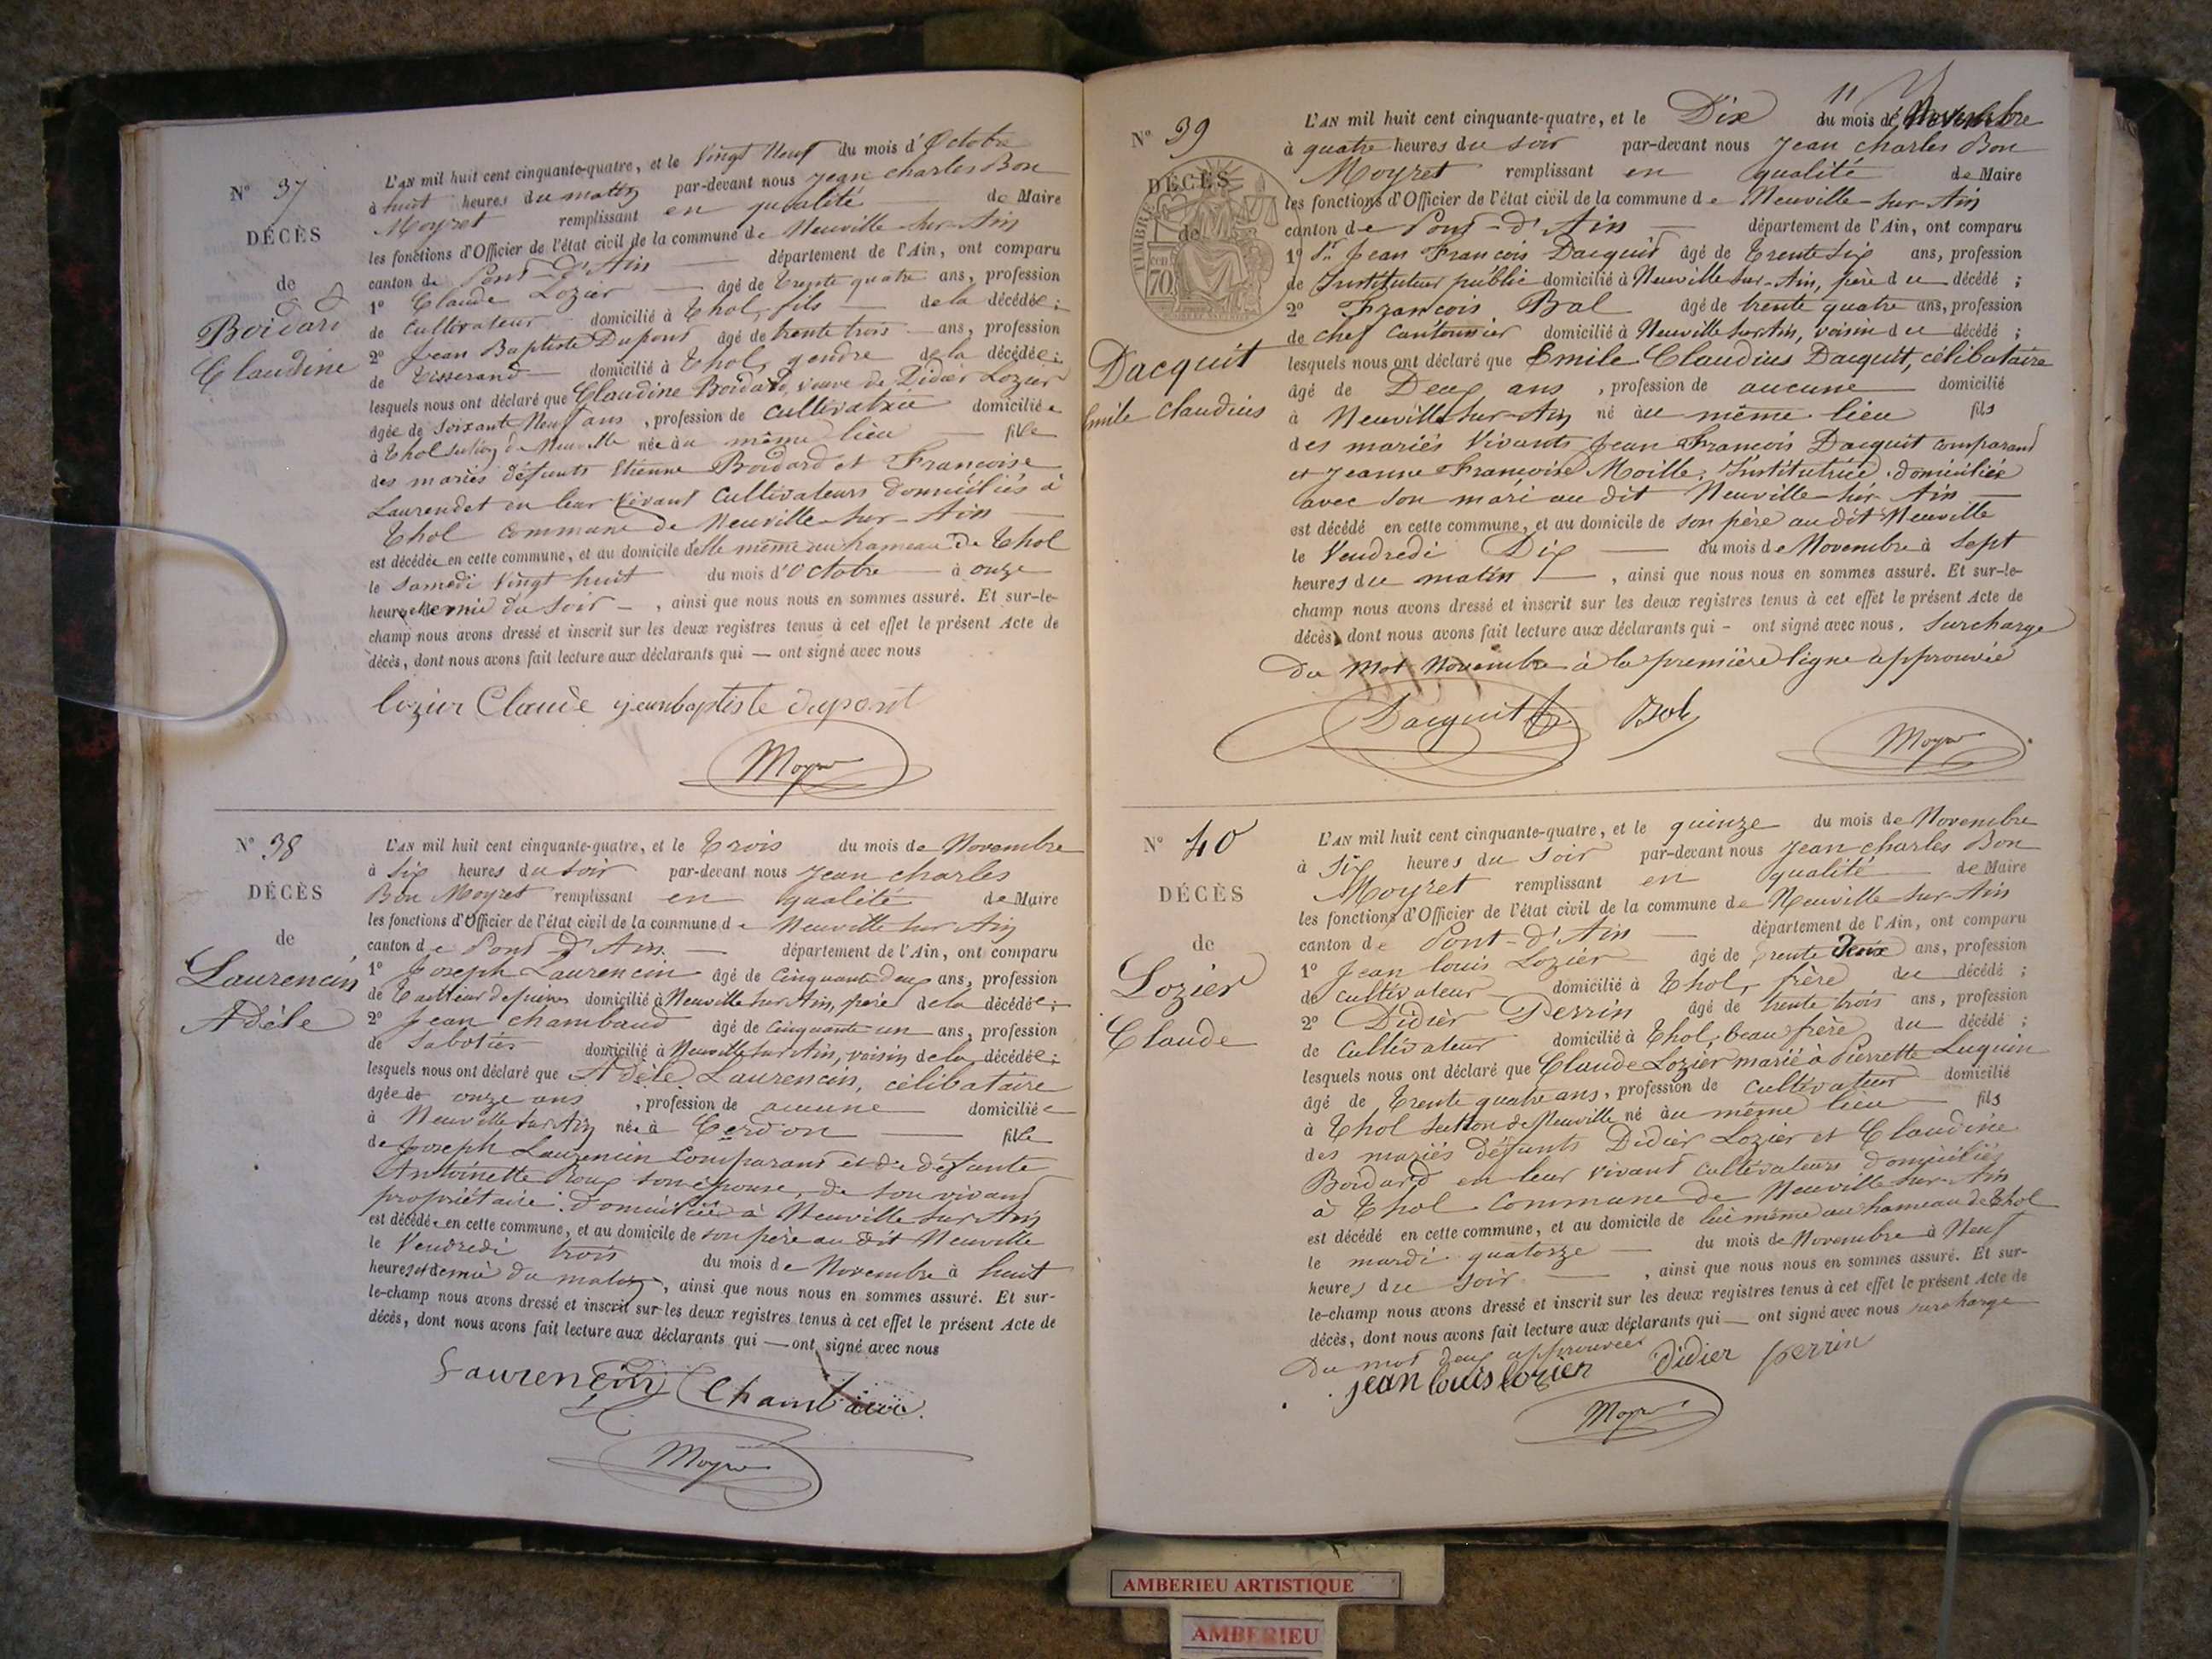 N° 37
DÉCÈS
de
Boidard
Claudine
L'AN mil huit cent cinquante-quatre, et le Vingt Neuf du mois d'Octobre
à huit heures du matin par-devant nous Jean Charles Bon
Moyret remplissant en qualité de Maire
les fonctions d'Officier de l'état civil de la commune de Neuville-sur-Ain
canton de Pont-d'Ain département de l'Ain, ont comparu
1° Claude Lozier âgé de trente quatre ans, profession
de Cultivateur domicilié à Thol, fils de la décédée ;
2° Jean Baptiste Dupont âgé de trente trois ans, profession
de Tisserand domicilié à Thol, gendre de la décédée ;
lesquels nous ont déclaré que Claudine Boidard, veuve de Didier Lozier
âgée de soixante Neuf ans, profession de Cultivatrice domiciliée
à Thol section de Neuville née au même lieu fille
des mariés défunts Etienne Boidard et Françoise
Laurendet en leur vivant Cultivateurs domiciliés à
Thol commune de Neuville-sur-Ain
est décédée en cette commune, et au domicile d'elle même au hameau de Thol
le Samedi Vingt huit du mois d'Octobre à onze
heures et demie du soir, ainsi que nous nous en sommes assuré. Et sur-le-
champ nous avons dressé et inscrit sur les deux registres tenus à cet effet le présent Acte de
décès, dont nous avons fait lecture aux déclarants qui — ont signé avec nous
lozier Claude jeanbaptiste dupont
Moyret
N° 38
DÉCÈS
de
Laurencin
Adèle
L'AN mil huit cent cinquante-quatre, et le Trois du mois de Novembre
à Six heures du soir par-devant nous Jean Charles
Bon Moyret remplissant en qualité de Maire
les fonctions d'Officier de l'état civil de la commune de Neuville sur Ain
canton de Pont-d'Ain département de l'Ain, ont comparu
1° Joseph Laurencin âgé de Cinquante deux ans, profession
de Tailleur de pierres domicilié à Neuville sur Ain, père de la décédée ;
2° Jean Chambaud âgé de Cinquante un ans, profession
de Sabotier domicilié à Neuville sur Ain, voisin de la décédée ;
lesquels nous ont déclaré que Adèle Laurencin, célibataire
âgée de onze ans, profession de aucune domiciliée
à Neuville sur Ain née à Cerdon fille
de Joseph Laurencin Comparant et de défunte
Antoinette Roux son épouse, de son vivant
propriétaire domiciliée à Neuville sur Ain
est décédée en cette commune, et au domicile de son père au dit Neuville
le Vendredi trois du mois de Novembre à huit
heures et demie du matin, ainsi que nous nous en sommes assuré. Et sur-
le-champ nous avons dressé et inscrit sur les deux registres tenus à cet effet le présent Acte de
décès, dont nous avons fait lecture aux déclarants qui — ont signé avec nous
Laurencin Chambaud
Moyret
11
N° 39
DÉCÈS
de
TIMBRE
70
Dacquit
Emile Claudius
L'AN mil huit cent cinquante-quatre, et le Dix du mois de Novembre
à quatre heures du soir par-devant nous Jean Charles Bon
Moyret remplissant en qualité de Maire
les fonctions d'Officier de l'état civil de la commune de Neuville-sur-Ain
canton de Pont-d'Ain département de l'Ain, ont comparu
1° Sr Jean François Dacquit âgé de trente six ans, profession
de Instituteur public domicilié à Neuville sur-Ain, père du décédé ;
2° François Bal âgé de trente quatre ans, profession
de chef Cantonnier domicilié à Neuville sur Ain, voisin du décédé ;
lesquels nous ont déclaré que Emile Claudius Dacquit, célibataire
âgé de Deux ans, profession de aucune domicilié
à Neuville sur-Ain né au même lieu fils
des mariés Vivants Jean François Dacquit comparant
et Jeanne Françoise Moille, Institutrice domiciliée
avec son mari au dit Neuville-sur Ain
est décédé en cette commune, et au domicile de son père au dit Neuville
le Vendredi Dix du mois de Novembre à Sept
heures du matin, ainsi que nous nous en sommes assuré. Et sur-le-
champ nous avons dressé et inscrit sur les deux registres tenus à cet effet le présent Acte de
décès, dont nous avons fait lecture aux déclarants qui - ont signé avec nous. Surcharge
du mot Novembre à la première ligne approuvée
Dacquit Bal
Moyret
N° 40
DÉCÈS
de
Lozier
Claude
L'AN mil huit cent cinquante-quatre, et le quinze du mois de Novembre
à Six heures du soir par-devant nous Jean Charles Bon
Moyret remplissant en qualité de Maire
les fonctions d'Officier de l'état civil de la commune de Neuville sur-Ain
canton de Pont-d'Ain département de l'Ain, ont comparu
1° Jean Louis Lozier âgé de trente Deux ans, profession
de cultivateur domicilié à Thol, frère du décédé ;
2° Didier Perrin âgé de trente trois ans, profession
de Cultivateur domicilié à Thol, beau frère du décédé ;
lesquels nous ont déclaré que Claude Lozier marié à Pierrette Luquin
âgé de Trente quatre ans, profession de Cultivateur domicilié
à Thol section de Neuville né au même lieu fils
des mariés défunts Didier Lozier et Claudine
Boidard en leur vivant cultivateurs domiciliés
à Thol commune de Neuville sur-Ain
est décédé en cette commune, et au domicile de lui même au hameau de Thol
le mardi quatorze du mois de Novembre à Neuf
heures du soir, ainsi que nous nous en sommes assuré. Et sur-
le-champ nous avons dressé et inscrit sur les deux registres tenus à cet effet le présent Acte de
décès, dont nous avons fait lecture aux déclarants qui — ont signé avec nous surcharge
du mot deux approuvée
jean louis lozier Didier perrin
Moyret
AMBERIEU ARTISTIQUE
AMBERIEU